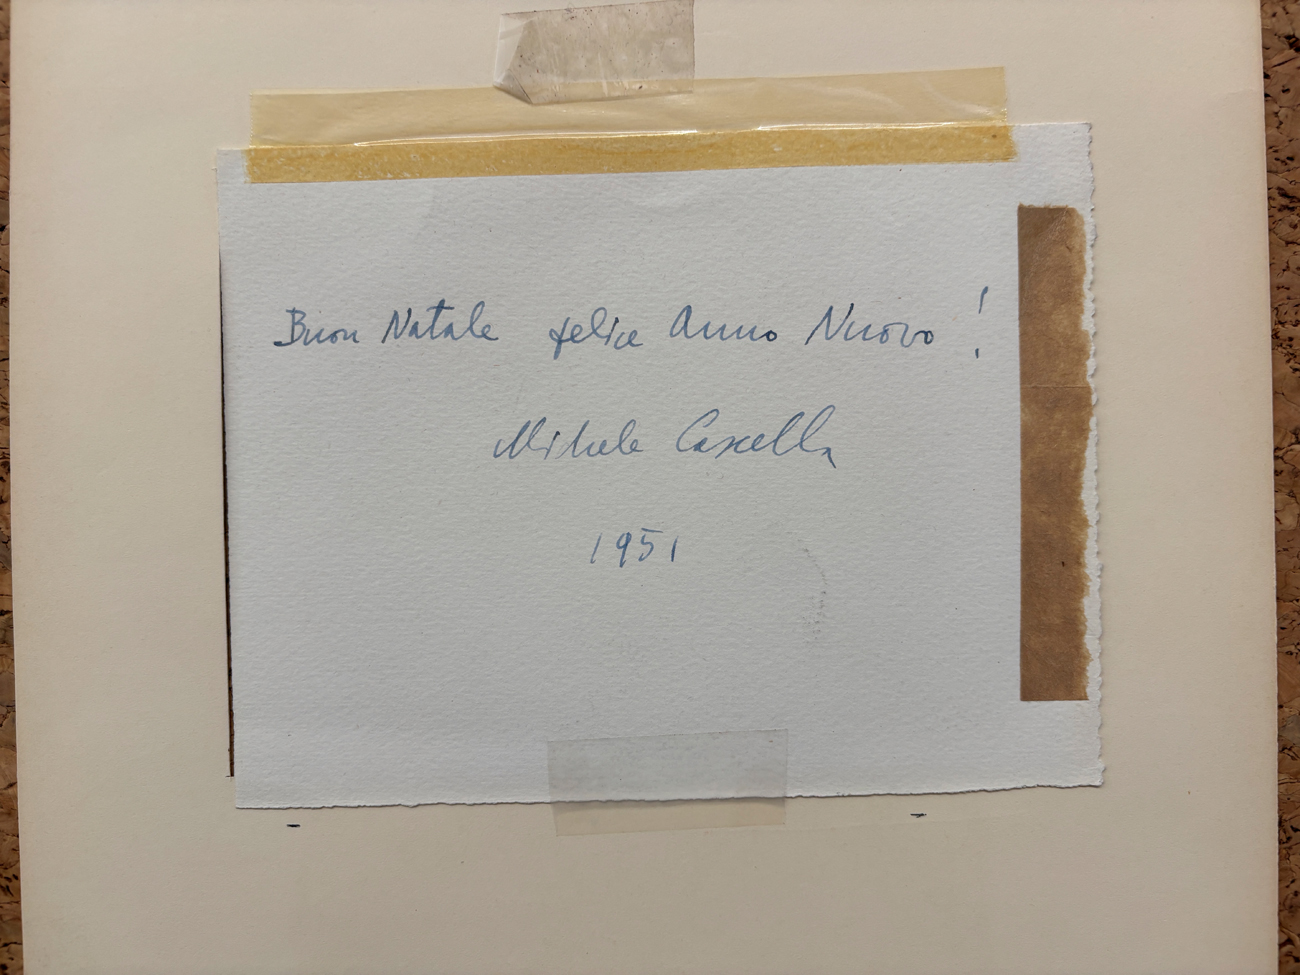 Buon Natale felice Anno Nuovo!
Michele Cascella
1951